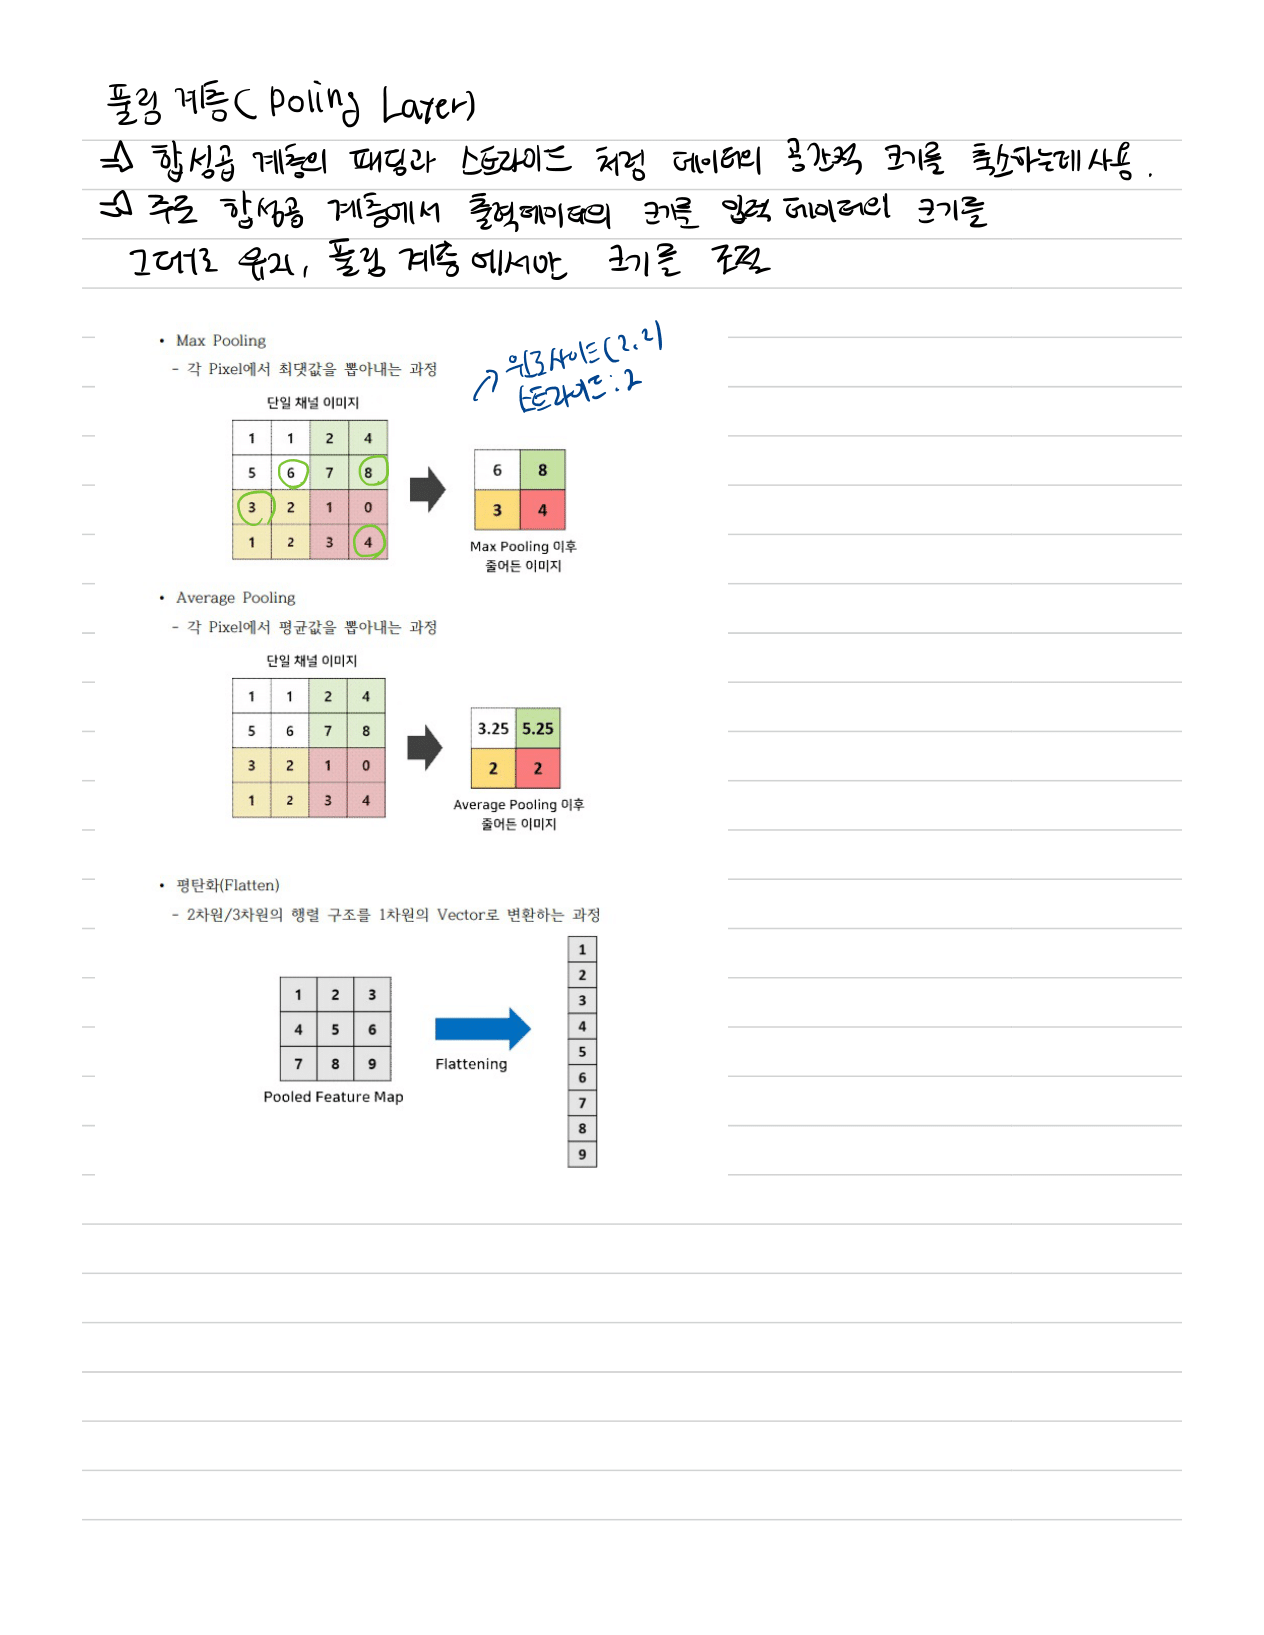 풀링 계층( Poling Layer)
⇒ 합성곱 계층의 패딩과 스트라이드 처럼 데이터의 공간적 크기를 축소하는데 사용.
⇒ 주로 합성곱 계층에서 출력데이터의 크기를 입력 데이터의 크기를
그대로 유지, 풀링 계층에서만 크기를 조절
• Max Pooling
- 각 Pixel에서 최댓값을 뽑아내는 과정
↗ 윈도사이드(2,2)
스트라이드:2
단일 채널 이미지
1 1 2 4
5 6 7 8
3 2 1 0
1 2 3 4
6 8
3 4
Max Pooling 이후
줄어든 이미지
• Average Pooling
- 각 Pixel에서 평균값을 뽑아내는 과정
단일 채널 이미지
1 1 2 4
5 6 7 8
3 2 1 0
1 2 3 4
3.25 5.25
2 2
Average Pooling 이후
줄어든 이미지
• 평탄화(Flatten)
- 2차원/3차원의 행렬 구조를 1차원의 Vector로 변환하는 과정
1 2 3
4 5 6
7 8 9
Pooled Feature Map
Flattening
1
2
3
4
5
6
7
8
9